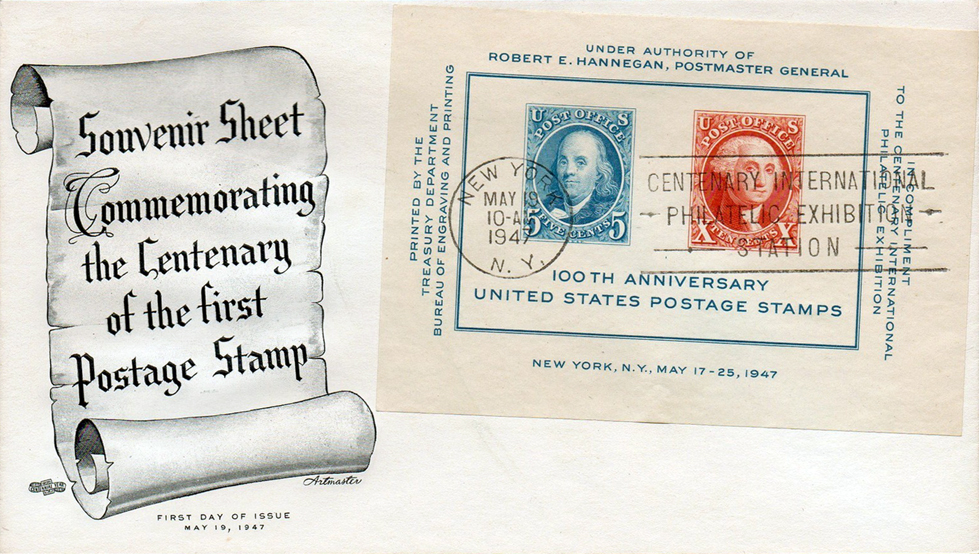 Souvenir Sheet
Commemorating
the Centenary
of the first
Postage Stamp
Artmaster
FIRST DAY OF ISSUE
MAY 19, 1947
UNDER AUTHORITY OF
ROBERT E. HANNEGAN, POSTMASTER GENERAL
PRINTED BY THE
TREASURY DEPARTMENT
BUREAU OF ENGRAVING AND PRINTING
U S
POST OFFICE
5 5
FIVE CENTS
U S
POST OFFICE
X X
TEN CENTS
NEW YORK
MAY 19
10-AM
1947
N. Y.
CENTENARY INTERNATIONAL
PHILATELIC EXHIBITION
STATION
100TH ANNIVERSARY
UNITED STATES POSTAGE STAMPS
IN COMPLIMENT
TO THE CENTENARY INTERNATIONAL
PHILATELIC EXHIBITION
NEW YORK, N.Y., MAY 17-25, 1947